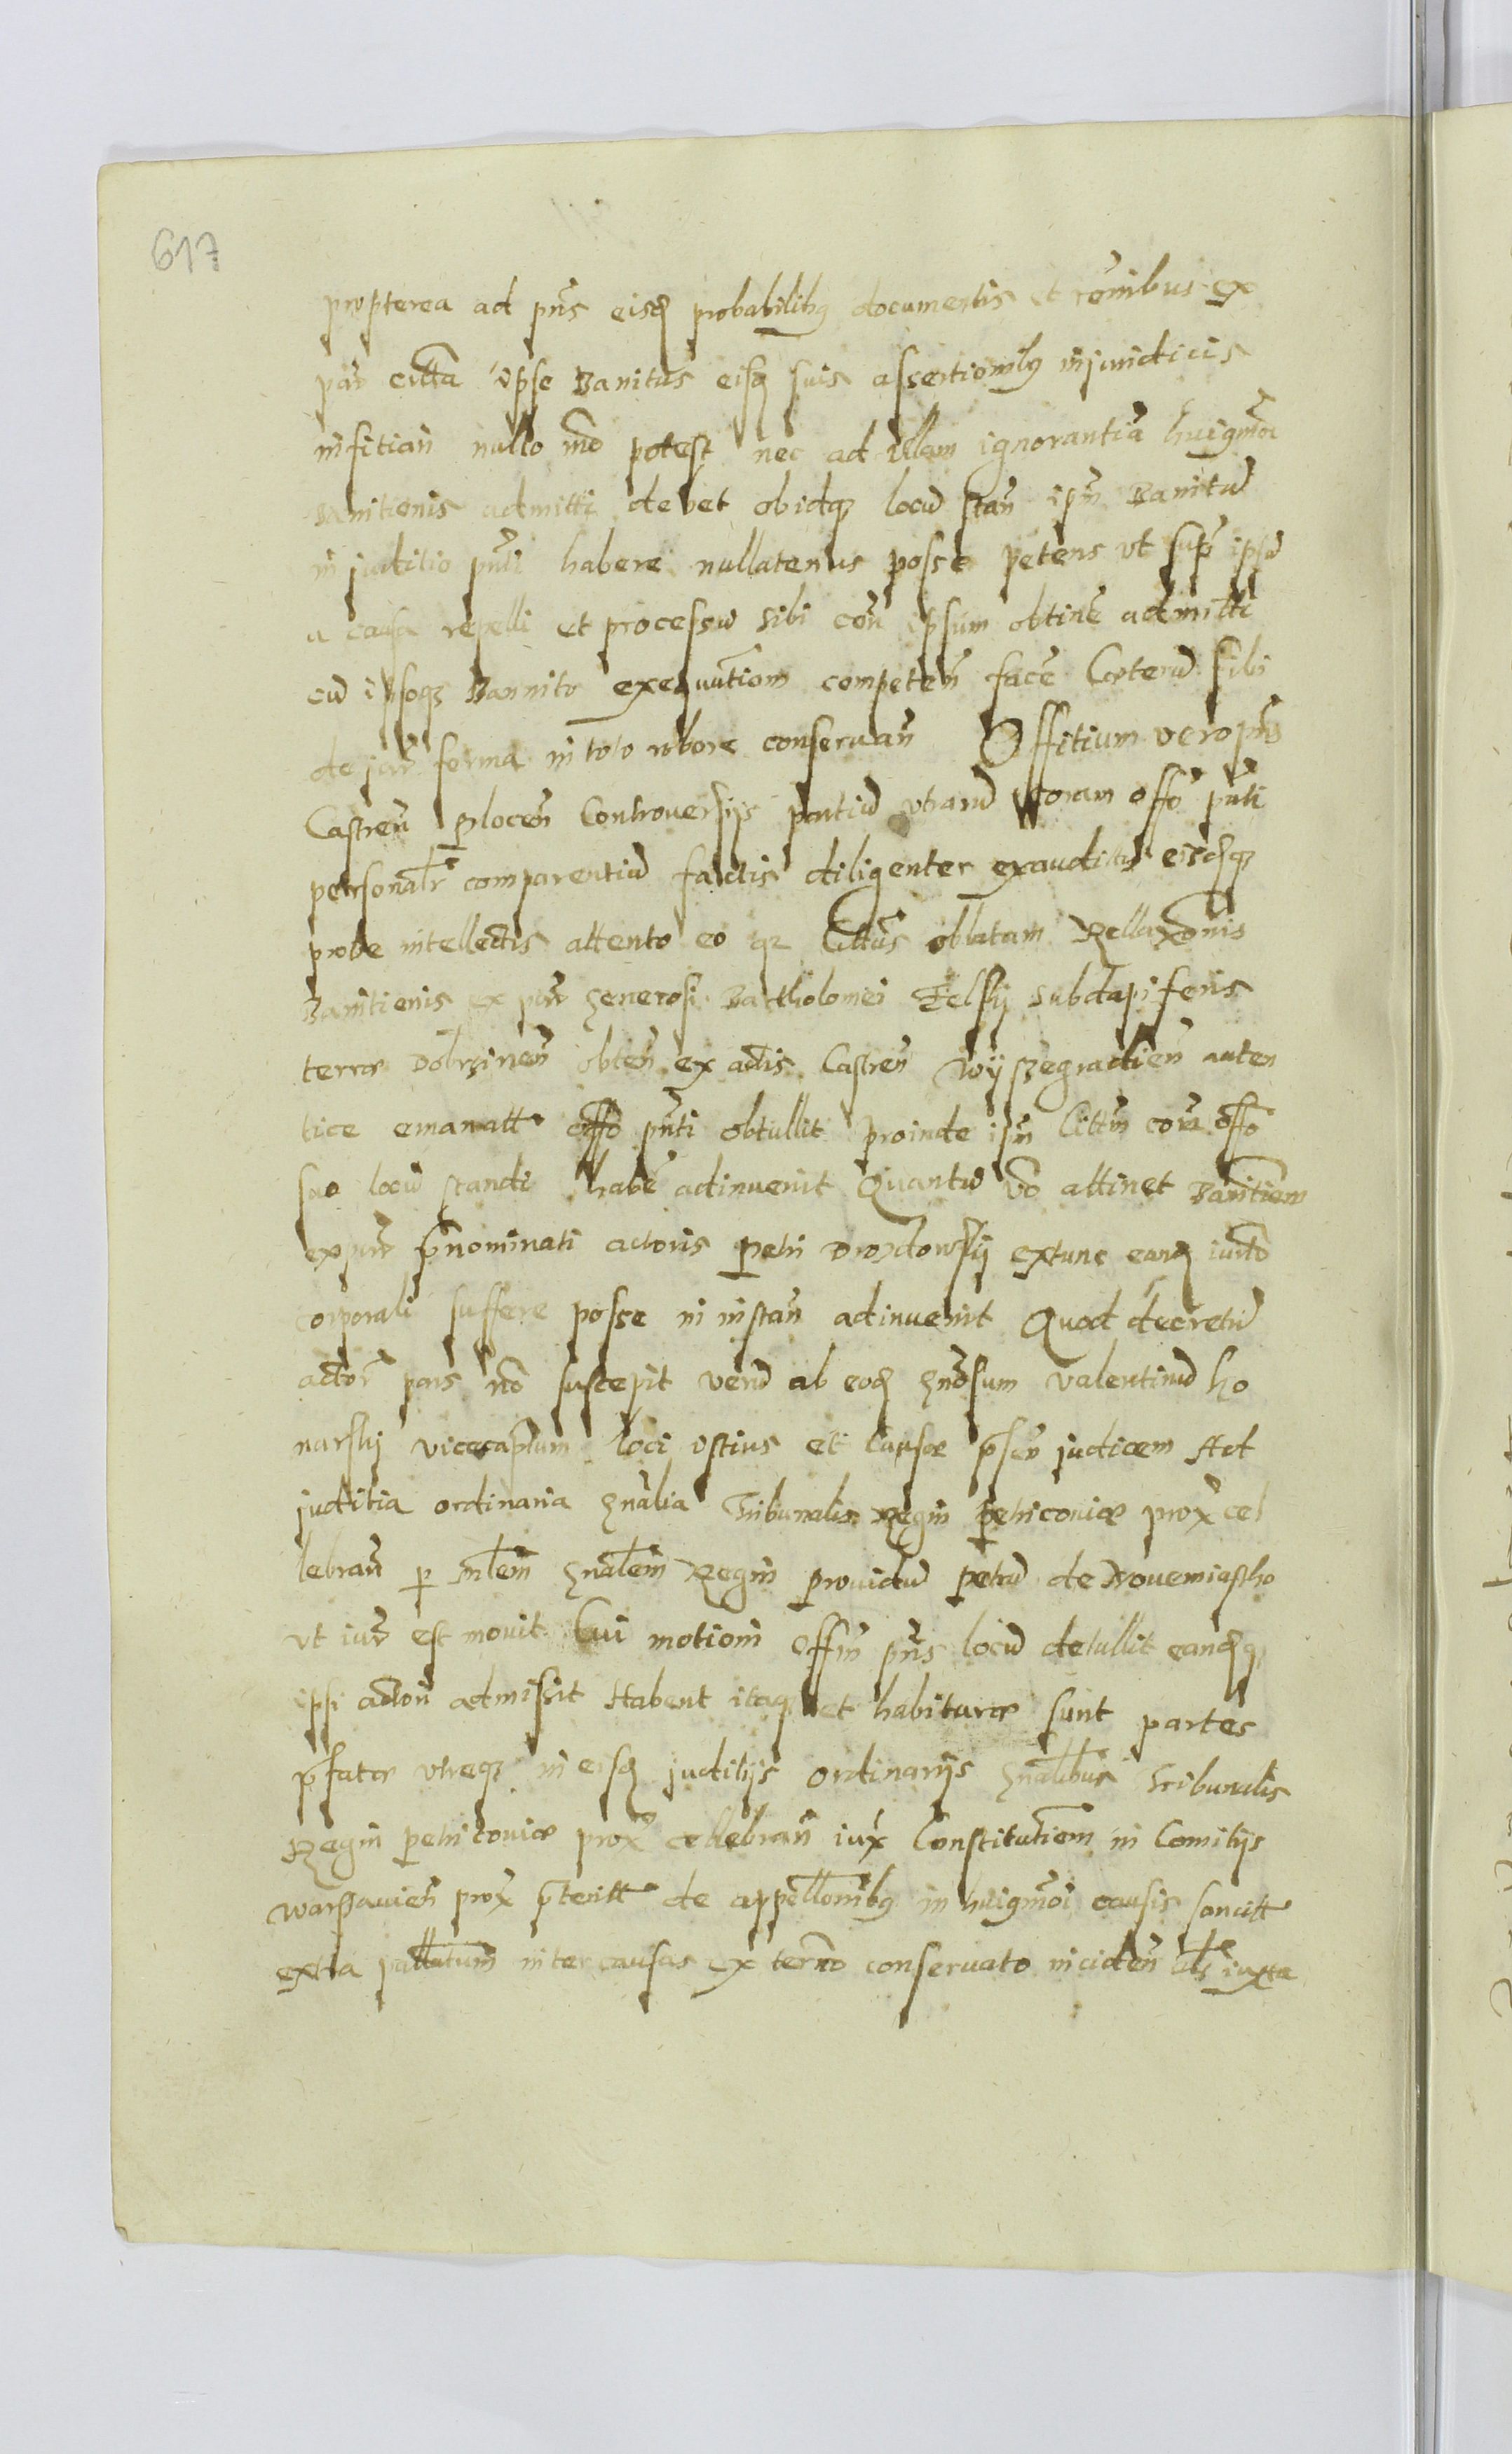 617
propterea ad pn̄s eisd probabilibq documentis et rōnibus ex
par citta ipse Banitus eisq suis assertionibq injuridicis
infitiari nullo mō potest nec ad illam ignorantiā huigmōi
Banitionis admitti debet ob idq locū stan̄ ipm̄ Banitū
in juditio pn̄ti habere nullatenus posse petens vt supr̄ ipsū
a causa repelli et processū sibi con̄ ipsum obtinē admitti
cū ipsoq Bannito exequutiom̄ competen̄ facē Cæterū sibi
de jur̄ forma in toto robore conseruan̄ Offitium vero pn̄s
Castren̄ Plocen̄ Controuersijs partiū vtrarū coram offō pn̄ti
personalr̄ comparentiū factis diligenter exauditis eisdq
probe intellectis attento eo qz Citt̄us oblatam Rellaxōnis
Banitienis ex par̄ Generosi Bartholomei Felskj Subdapiferis
terræ Dobrzinen̄ obten̄ ex actis Castren̄ Wyszegradien̄ auten
tice emanatt offō pn̄ti obtullit proinde ipm̄ Citt̄m cor̄ offō
suo locū standi habē adinuenit Quantū vō attinet Banitiem̄
ex par̄ p̄nominati actoris Petri Drozdowskij extunc eand iurto
corporali suffere posse in instan̄ adinuenit Quod decretū
actor̄ pars nō suscepit verū ab eod gnōsum Valentinū Ko
narskj vicecaptum loci istius et causæ p̄sen̄ judicem Ad
juditia ordinaria gn̄alia Tribunalis Regni Petricouiæ prox̄ cel
lebran̄ p mlēm gnālem Regni prouidū Petrū de Nouemiastho
vt iur̄ est mouit Cui motioni offm̄ pn̄s locū detullit eandq
ipsi actori admissit Habent itaq et habituræ sunt partes
p̄fatæ vtreq in eisd juditijs ordinarijs gnalibus Tribunalis
Regni Petricouiæ prox̄ cellebran̄ iux̄ Constitutiem̄ in Comitijs
Warssauien̄ prox̄ p̄teritt de appellōnibq in huigmōi causis sancitt
extra pallatum inter causas ex termō conseruato inciden̄ iuxta